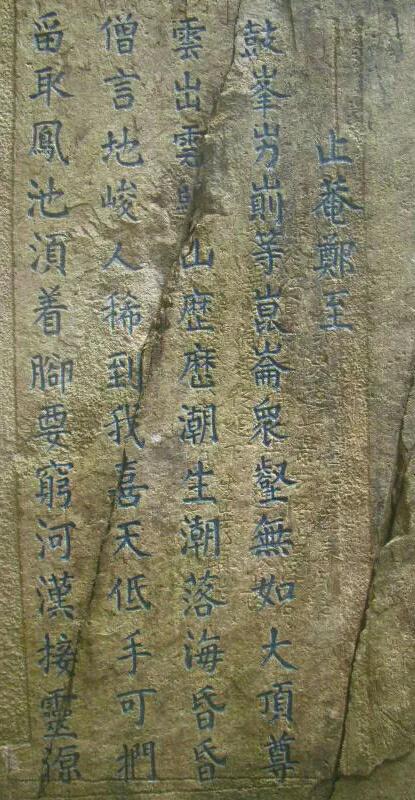 止菴鄭至
鼓峯屴崱等崑崙衆壑無如大頂尊
雲出雲山歷歷潮生潮落海昏昏
僧言地峻人稀到我喜天低手可捫
留取鳳池湏着腳要窮河漢接靈源